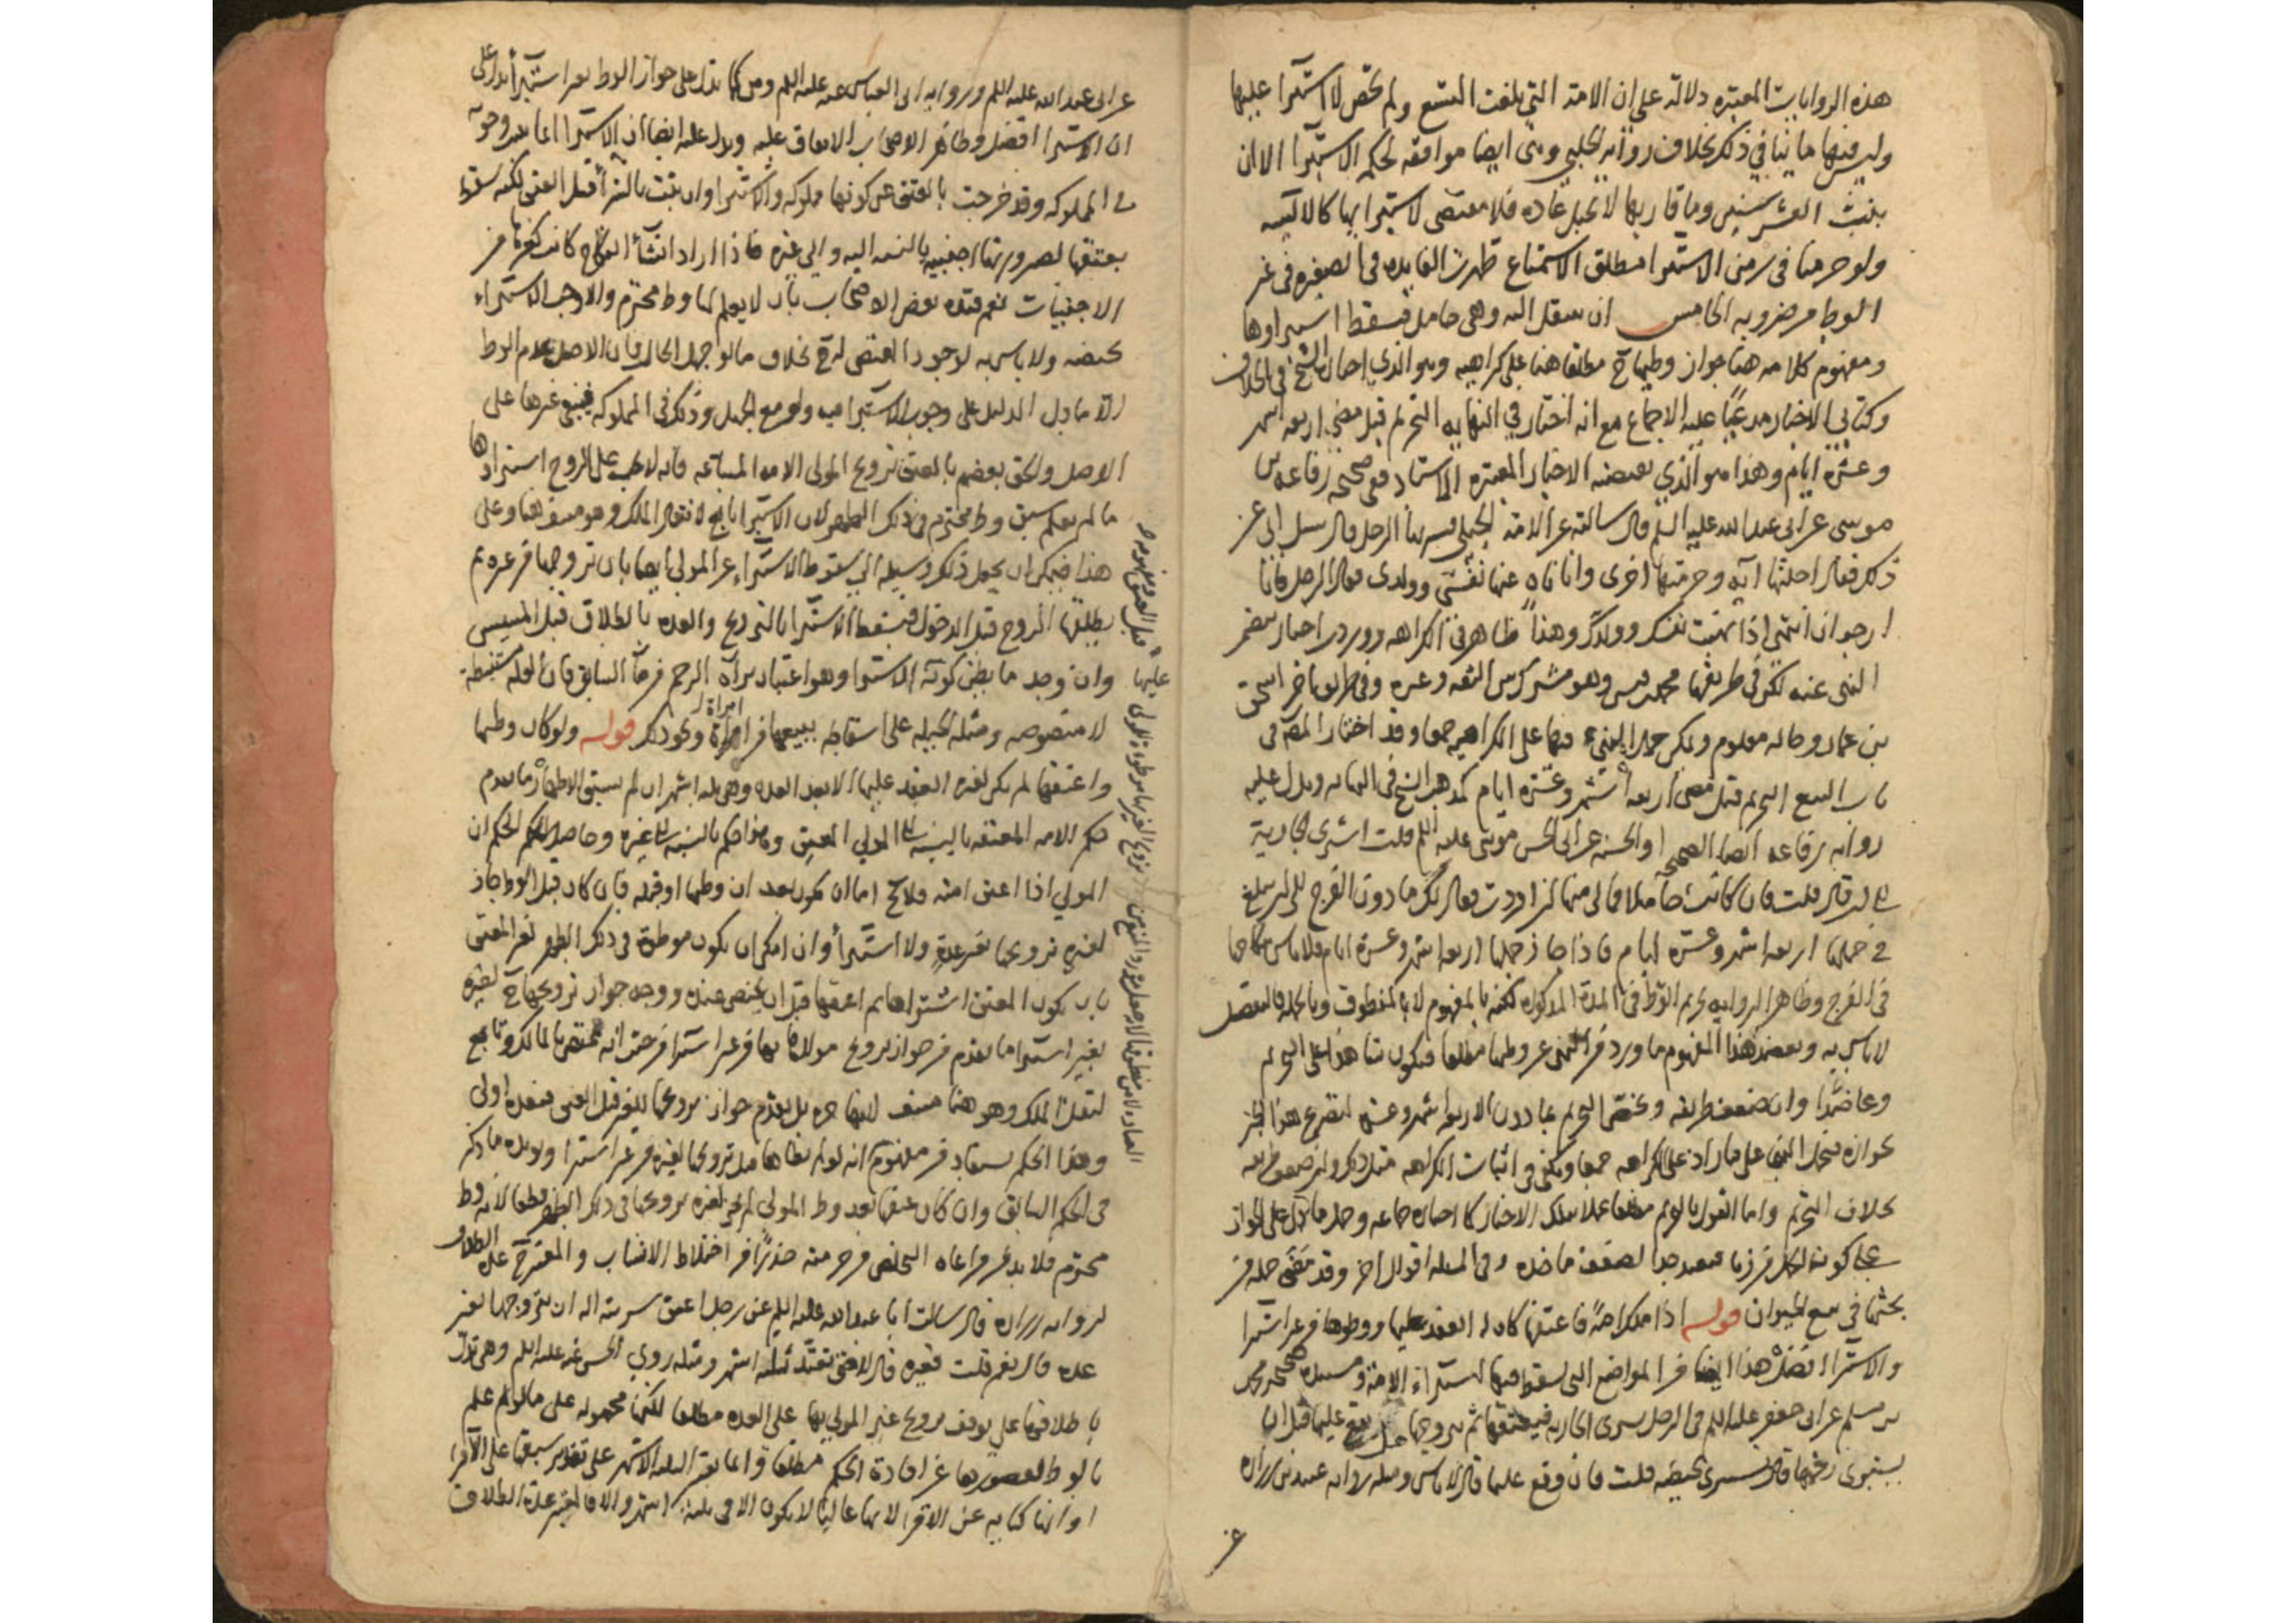 هذه الروايات المعتبره دلالة على ان الامة التي بلغت التسع ولم تحض لا استبرا عليها
وليس فيها ما ينافي ذلك بخلاف رواية الحلبي وهي ايضا موافقه لحكم الاستبرا الا ان
بنت العشر سنين وما قاربها لا تحبل عادة فلا مقتضى لاستبرايها كالايسه
ولو حرمنا في زمن الاستبرا مطلق الاستمتاع ظهرت الفايده في الصغيره في غير
الوطء من ضروبه الخامس ان ينتقل اليه وهي حامل فيسقط استبراوها
ومفهوم كلامه هنا جواز وطيها ح مطلقا هنا على كراهيه وهو الذي اختاره الشيخ في الخلاف
وكتابي الاخبار مدعيا عليه الاجماع مع انه اختار في النهايه التحريم قبل مضي اربعه اشهر
وعشره ايام وهذا هو الذي تعضده الاخبار المعتبره الاسناد ففي صحيحه رفاعه بن
موسى عن ابي عبد الله عليه السلم قال سالته عن الامة الحبلى يشتريها الرجل قال سئل ابي عن
ذلك فقال احلتها آية وحرمتها اخرى وانا ناه عنها نفسي وولدى فقال الرجل فانا
ارجو ان انتهي اذا نهيت نفسك وولدك وهذا ظاهر في الكراهه وورد اخبار تتضمن
النهي عنه لكن في طريقها محمد بن قيس وهو مشترك بين الثقه وغيره وفي طريق اخر اسحق
بن عمار وحاله معلوم ويمكن حمل النهي فيها على الكراهيه جمعا وقد اختار المص في
باب البيع التحريم قبل مضي اربعه اشهر وعشره ايام كمذهب الشيخ في النهايه ويدل عليه
روايه رفاعه ايضا الصحيحه او الحسنه عن ابي الحسن موسى عليه السلم قلت اشتري الجارية
الى ان قال قلت فان كانت حاملا فما لي منها ان اردت فقال لك ما دون الفرج الى ان تبلغ
في حملها اربعه اشهر وعشره ايام فاذا جاز حملها اربعه اشهر وعشره ايام فلا باس بنكاحها
في الفرج وظاهر الروايه تحريم الوطء في المدة المذكوره لكنه بالمفهوم لا بالمنطوق وبالجمله فالتفصيل
لا باس به ويعضد هذا المفهوم ما ورد من النهي عن وطيها مطلقا فيكون شاهدا على التحريم
وعاضدا وان ضعف طريقه ويختص التحريم بما دون الاربعه اشهر وعشر لتصريح هذا الخبر
بجوازه فيحمل النهي على ما زاد على الكراهه جمعا ويكفي في اثبات الكراهه مثل ذلك وان ضعف طريقه
بخلاف التحريم واما القول بالتحريم مطلقا عملا بتلك الاخبار كما اختاره جماعه وحمل ما دل على الجواز
على كون الحمل من زنا فبعيد جدا لضعف ماخذه وفي المسله اقوال اخر وقد مضى جمله من
بحثها في بيع الحيوان قوله اذا ملك امة فاعتقها كان له العقد عليها ووطوها من غير استبرا
والاستبرا افضل هذا ايضا من المواضع التي يسقط فيها استبراء الامة ومستنده صحيحه محمد
بن مسلم عن ابي جعفر عليه السلم في الرجل يشترى الجاريه فيعتقها ثم يتزوجها هل يقع عليها قبل ان
يستبرى رحمها قال يستبرى بحيضه قلت فان وقع عليها قال لا باس ومثله روايه عبيد بن زراره
عن
عن ابي عبد الله عليه السلم ورواية ابي العباس عنه عليه السلم ومن كما تدل على جواز الوط بغير استبرا تدل على
ان الاستبرا افضل وظاهر الاصحاب الاتفاق عليه ويدل عليه ايضا ان الاستبرا انما يجب وجوبه
في المملوكه وقد خرجت بالعتق عن كونها مملوكه والاستبرا وان ثبت بالشرا قبل العتق لكنه سقط
بعتقها لصيرورتها اجنبيه بالنسبه اليه والى غيره فاذا اراد انشاء النكاح كانت كغيرها من
الاجنبيات نعم قيده بعض الاصحاب بان لا يعلم لها وط محترم والا وجب الاستبراء
بحيضه ولا باس به لوجود المقتضى له ح بخلاف ما لو جهل الحال فان الاصل عدم الوط
الا ما دل الدليل على وجوب الاستبرا فيه ولو مع الجهل وذلك في المملوكه فيبقى غيرها على
الاصل والحق بعضهم بالعتق تزويج المولى الامه المبتاعه فانه لا يجب على الزوج استبراوها
ما لم يعلم سبق وط محترم في ذلك الطهر لان الاستبرا تابع لانتقال الملك وهو منتف هنا وعلى
هذا فيمكن ان يجعل ذلك وسيله الى سقوط الاستبراء عن المولى ايضا بان تزوجها من غيره ثم
يطلقها الزوج قبل الدخول فيسقط الاستبرا بالتزويج والعده بالطلاق قبل المسيس
وان وجد ما يظن كونه الاستبرا وهو اعتبار براة الرحم من ماء السابق فان العله مستنبطة
لا منصوصه ومثله الحيله على اسقاطه ببيعها من امراة ونحو ذلك قوله ولو كان وطيها
امراة
واعتقها لم يكن لغيره العقد عليها الا بعد العده وهي ثلثه اشهر ان لم يسبق الاطهار ما تقدم
حكم الامه المعتقه بالنسبه الى المولى المعتق وهذا حكم بالنسبه الى غيره وحاصل الحكم ان
المولى اذا اعتق امته فلا يخ اما ان يكون بعد ان وطيها او قبله فان كان قبل الوط جاز
لغيره تزويجها بغير عدة ولا استبرأ وان امكن ان يكون موطوة في ذلك الطهر لغير المعتق
بان يكون المعتق اشتراها ثم اعتقها قبل ان تحيض عنده ووجه جواز تزويجها ح لغيره
بغير استبرا ما تقدم من جواز تزويج مولاها بها من غير استبرا من حيث انه مختص بالمالك وتابع
لنقل الملك وهو هنا منتف لانها حره بل تقدم جواز تزويجها للغير قبل العتق فبعده اولى
وهذا الحكم يستفاد من مفهومه انه لو لم يطاها صح تزويجها لغيره من غير استبرا ويويده ما ذكر
في الحكم السابق وان كان عتقها بعد وط المولى لم يجز لغيره تزويجها في ذلك الطهر قطعا لانه وط
محترم فلا بد من مراعاه التخلص من حرمته حذرا من اختلاط الانساب والمعتبر ح عدة الطلاق
لروايه زراره قال سالت ابا عبد الله عليه السلم عن رجل اعتق سريته اله ان يتزوجها بغير
عده قال نعم قلت فغيره قال لا حتى تعتد ثلثه اشهر ومثله روي الحسن عنه عليه السلم وهي تدل
باطلاقها على توقف تزويج غير المولى بها على العده مطلقا لكنها محموله على ما لو لم يعلم
بالوط لقصورها عن افادة الحكم مطلقا وانما تعتبر الثلثه الاشهر على تقدير سبقها على الاقراء
او انها كنايه عن الاقراء لانها غالبا لا يكون الا في ثلثه اشهر والا فالمعتبر عدة الطلاق